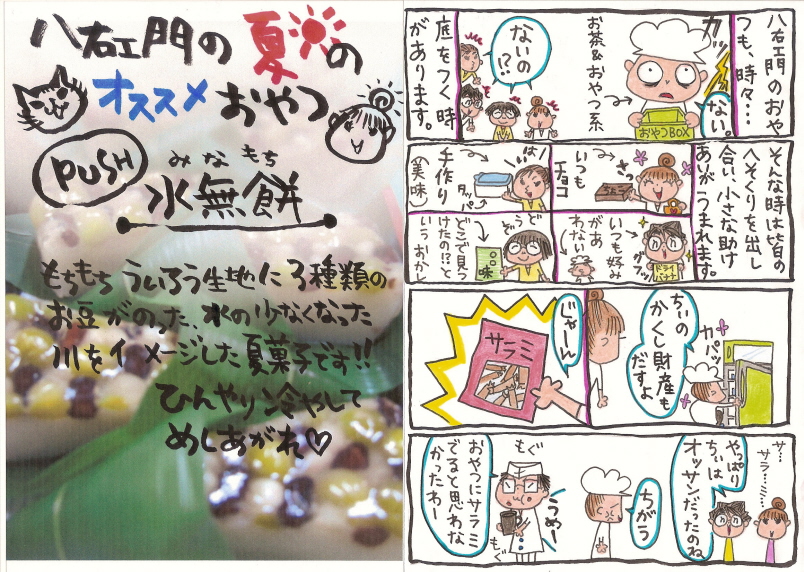 八右ヱ門の夏の
オススメおやつ
PUSH
みなもち
水無餅
もちもちういろう生地に3種類の
お豆がのった、水の少なくなった
川をイメージした夏菓子です!!
ひんやり冷やして
めしあがれ♡
八右ヱ門のおや
つも、時々…
カッ
ない。
お茶&おやつ系
おやつBOX
ないの
!?
底をつく時
があります。
そんな時は皆の
へそくりを出し
合い、小さな助け
あいが うまれます。
さっ
チョコ
いつも
チョコ
はい
タッパ
手作り
(美味)
グフッ
ドライ
バナナ
いつも好み
があ
わない
どうぞ
〇〇味
どこで見つ
けたの!?と
いうおかし
カパッ
ちぃの
かくし財産も
だすよ
じゃーん
サラミ
サ…
サラ…ミ…
やっぱり
ちぃは
オッサンだったのね
ちがう
うめー
もぐ
もぐ
おやつにサラミ
でると思わな
かったわー